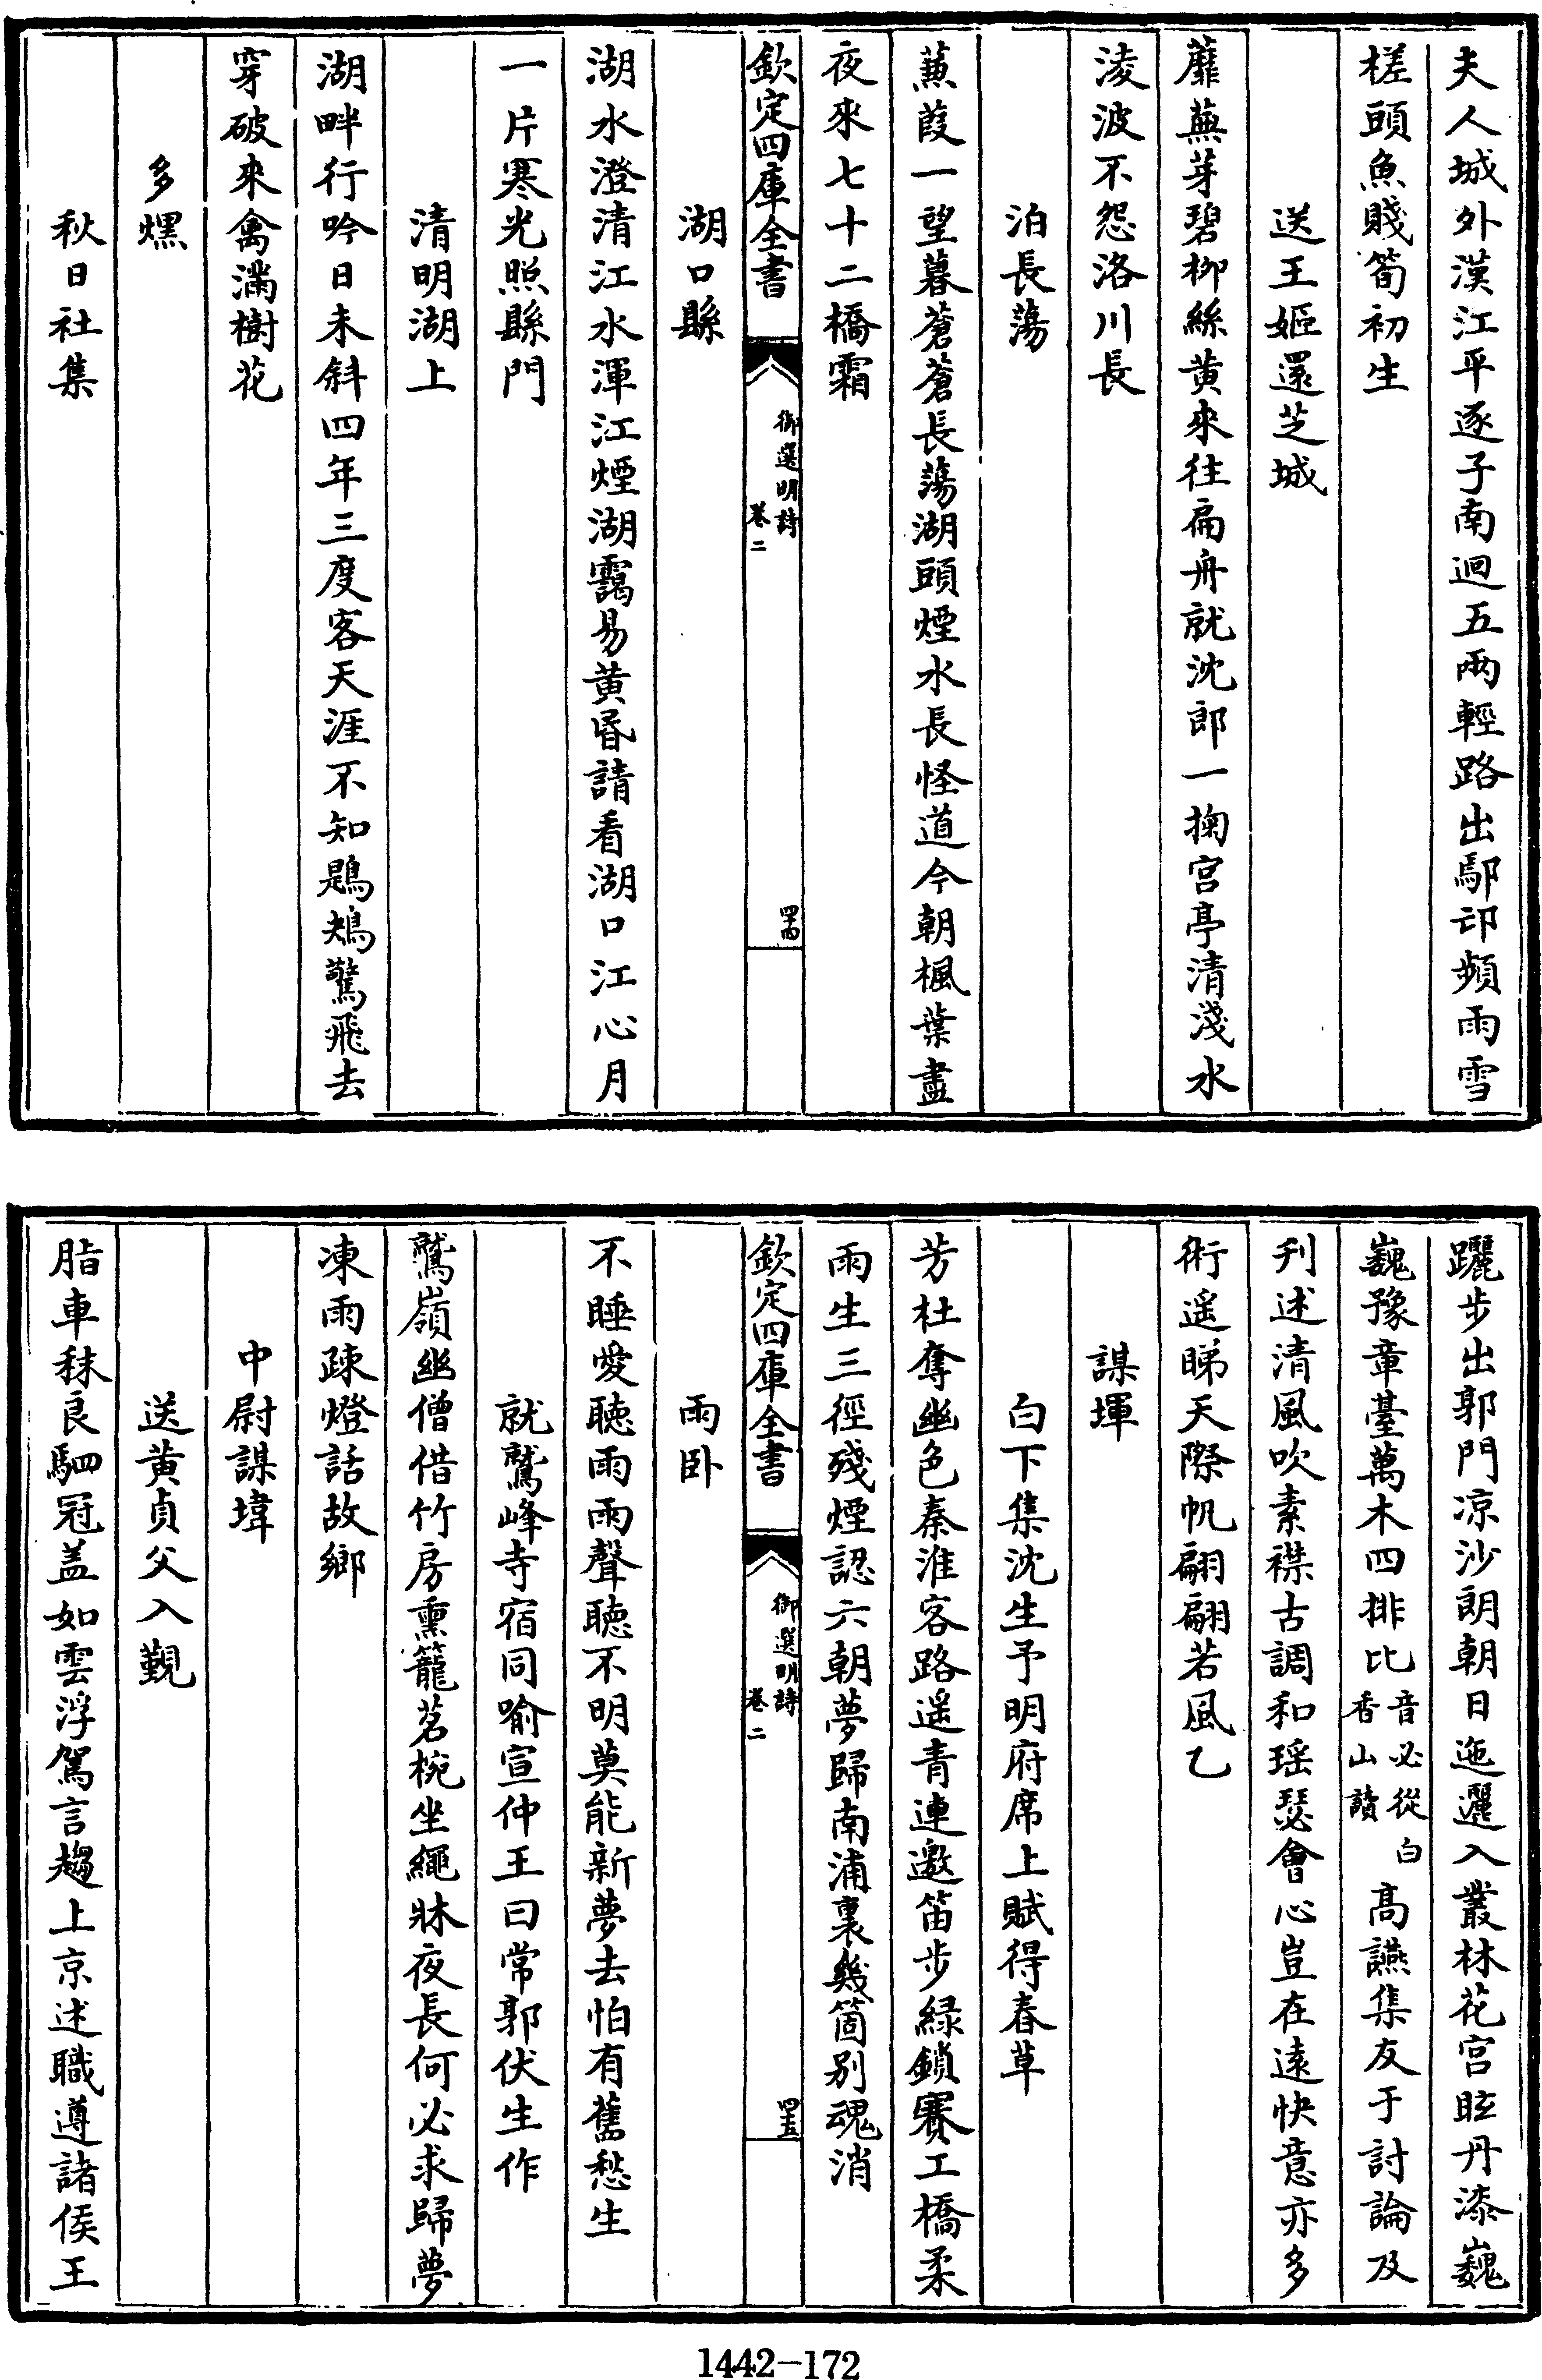 夫人城外漢江平逐子南迴五兩輕路出鄢𨙸頻雨雪
槎頭魚賤筍初生
送王姬還芝城
蘼蕪芽碧柳絲黃來往扁舟就沈郎一掬宮亭清淺水
淩波不怨洛川長
泊長蕩
蒹葭一望暮蒼蒼長蕩湖頭煙水長怪道今朝楓葉盡
夜來七十二橋霜
欽定四庫全書
御選明詩
卷二
四十四
湖口縣
湖水澄清江水渾江煙湖靄易黃昏請看湖口江心月
一片寒光照縣門
清明湖上
湖畔行吟日未斜四年三度客天涯不知鶗鴂驚飛去
穿破來禽滿樹花
多熼
秋日社集
躧步出郭門凉沙朗朝日迤邐入叢林花宮眩丹漆巍
巍豫章臺萬木四排比音必從白香山讀高讌集友于討論及
刋述清風吹素襟古調和瑤瑟會心豈在遠快意亦多
術遥睇天際帆翩翩若風乙
謀㙔
白下集沈生予明府席上賦得春草
芳杜奪幽色秦淮客路遥青連邀笛步緑鎖賽工橋柔
雨生三徑殘煙認六朝夢歸南浦裏幾箇别魂消
欽定四庫全書
御選明詩
卷二
四十五
雨卧
不睡愛聽雨雨聲聽不明莫能新夢去怕有舊愁生
就鷲峰寺宿同喻宣仲王曰常郭伏生作
鷲嶺幽僧借竹房熏籠茗椀坐繩牀夜長何必求歸夢
凍雨疎燈話故鄉
中尉謀㙔
送黃貞父入覲
脂車秣良駟冠盖如雲浮駕言趨上京述職遵諸侯王
1442-172